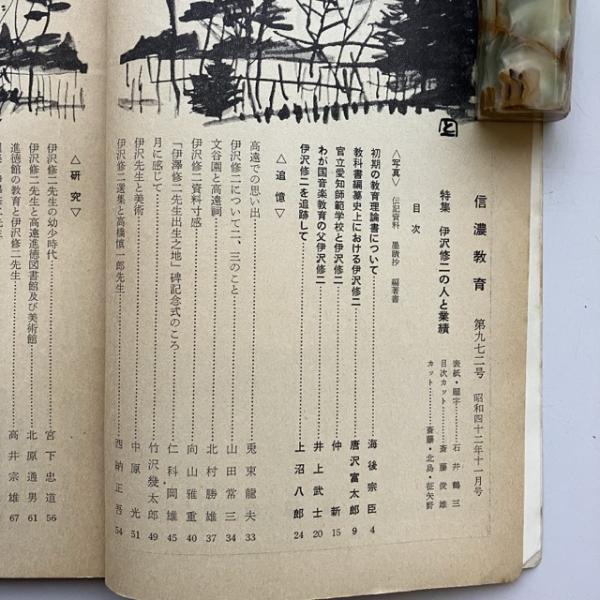 信濃教育 第九七二号 昭和四十二年十一月号
特集 伊沢修二の人と業績
表紙・題字………石井鶴三
目次カット………斎藤俊雄
カット………斎藤・北島・征矢野
目次
〈写真〉 伝記資料 墨蹟抄 編著書
初期の教育理論書について………海後宗臣 4
教科書編纂史上における伊沢修二………唐沢富太郎 9
官立愛知師範学校と伊沢修二………仲新 15
わが国音楽教育の父伊沢修二………井上武士 20
伊沢修二を追跡して………上沼八郎 24
△追憶▽
高遠での思い出………兎東龍夫 33
伊沢修二について二、三のこと………山田常三 34
文谷園と高遠祠………北村勝雄 37
伊沢修二資料寸感………向山雅重 40
「伊澤修二先生出生之地」碑記念式のころ………仁科・岡雄 45
月に感じて………竹沢幾太郎 49
伊沢先生と美術………中原光 51
伊沢修二選集と高橋慎一郎先生………西納正吾 54
△研究▽
伊沢修二先生の幼少時代………宮下忠道 56
伊沢修二先生と高遠進徳図書館及び美術館………北原通男 61
進徳館の教育と伊沢修二先生………高井宗雄 67